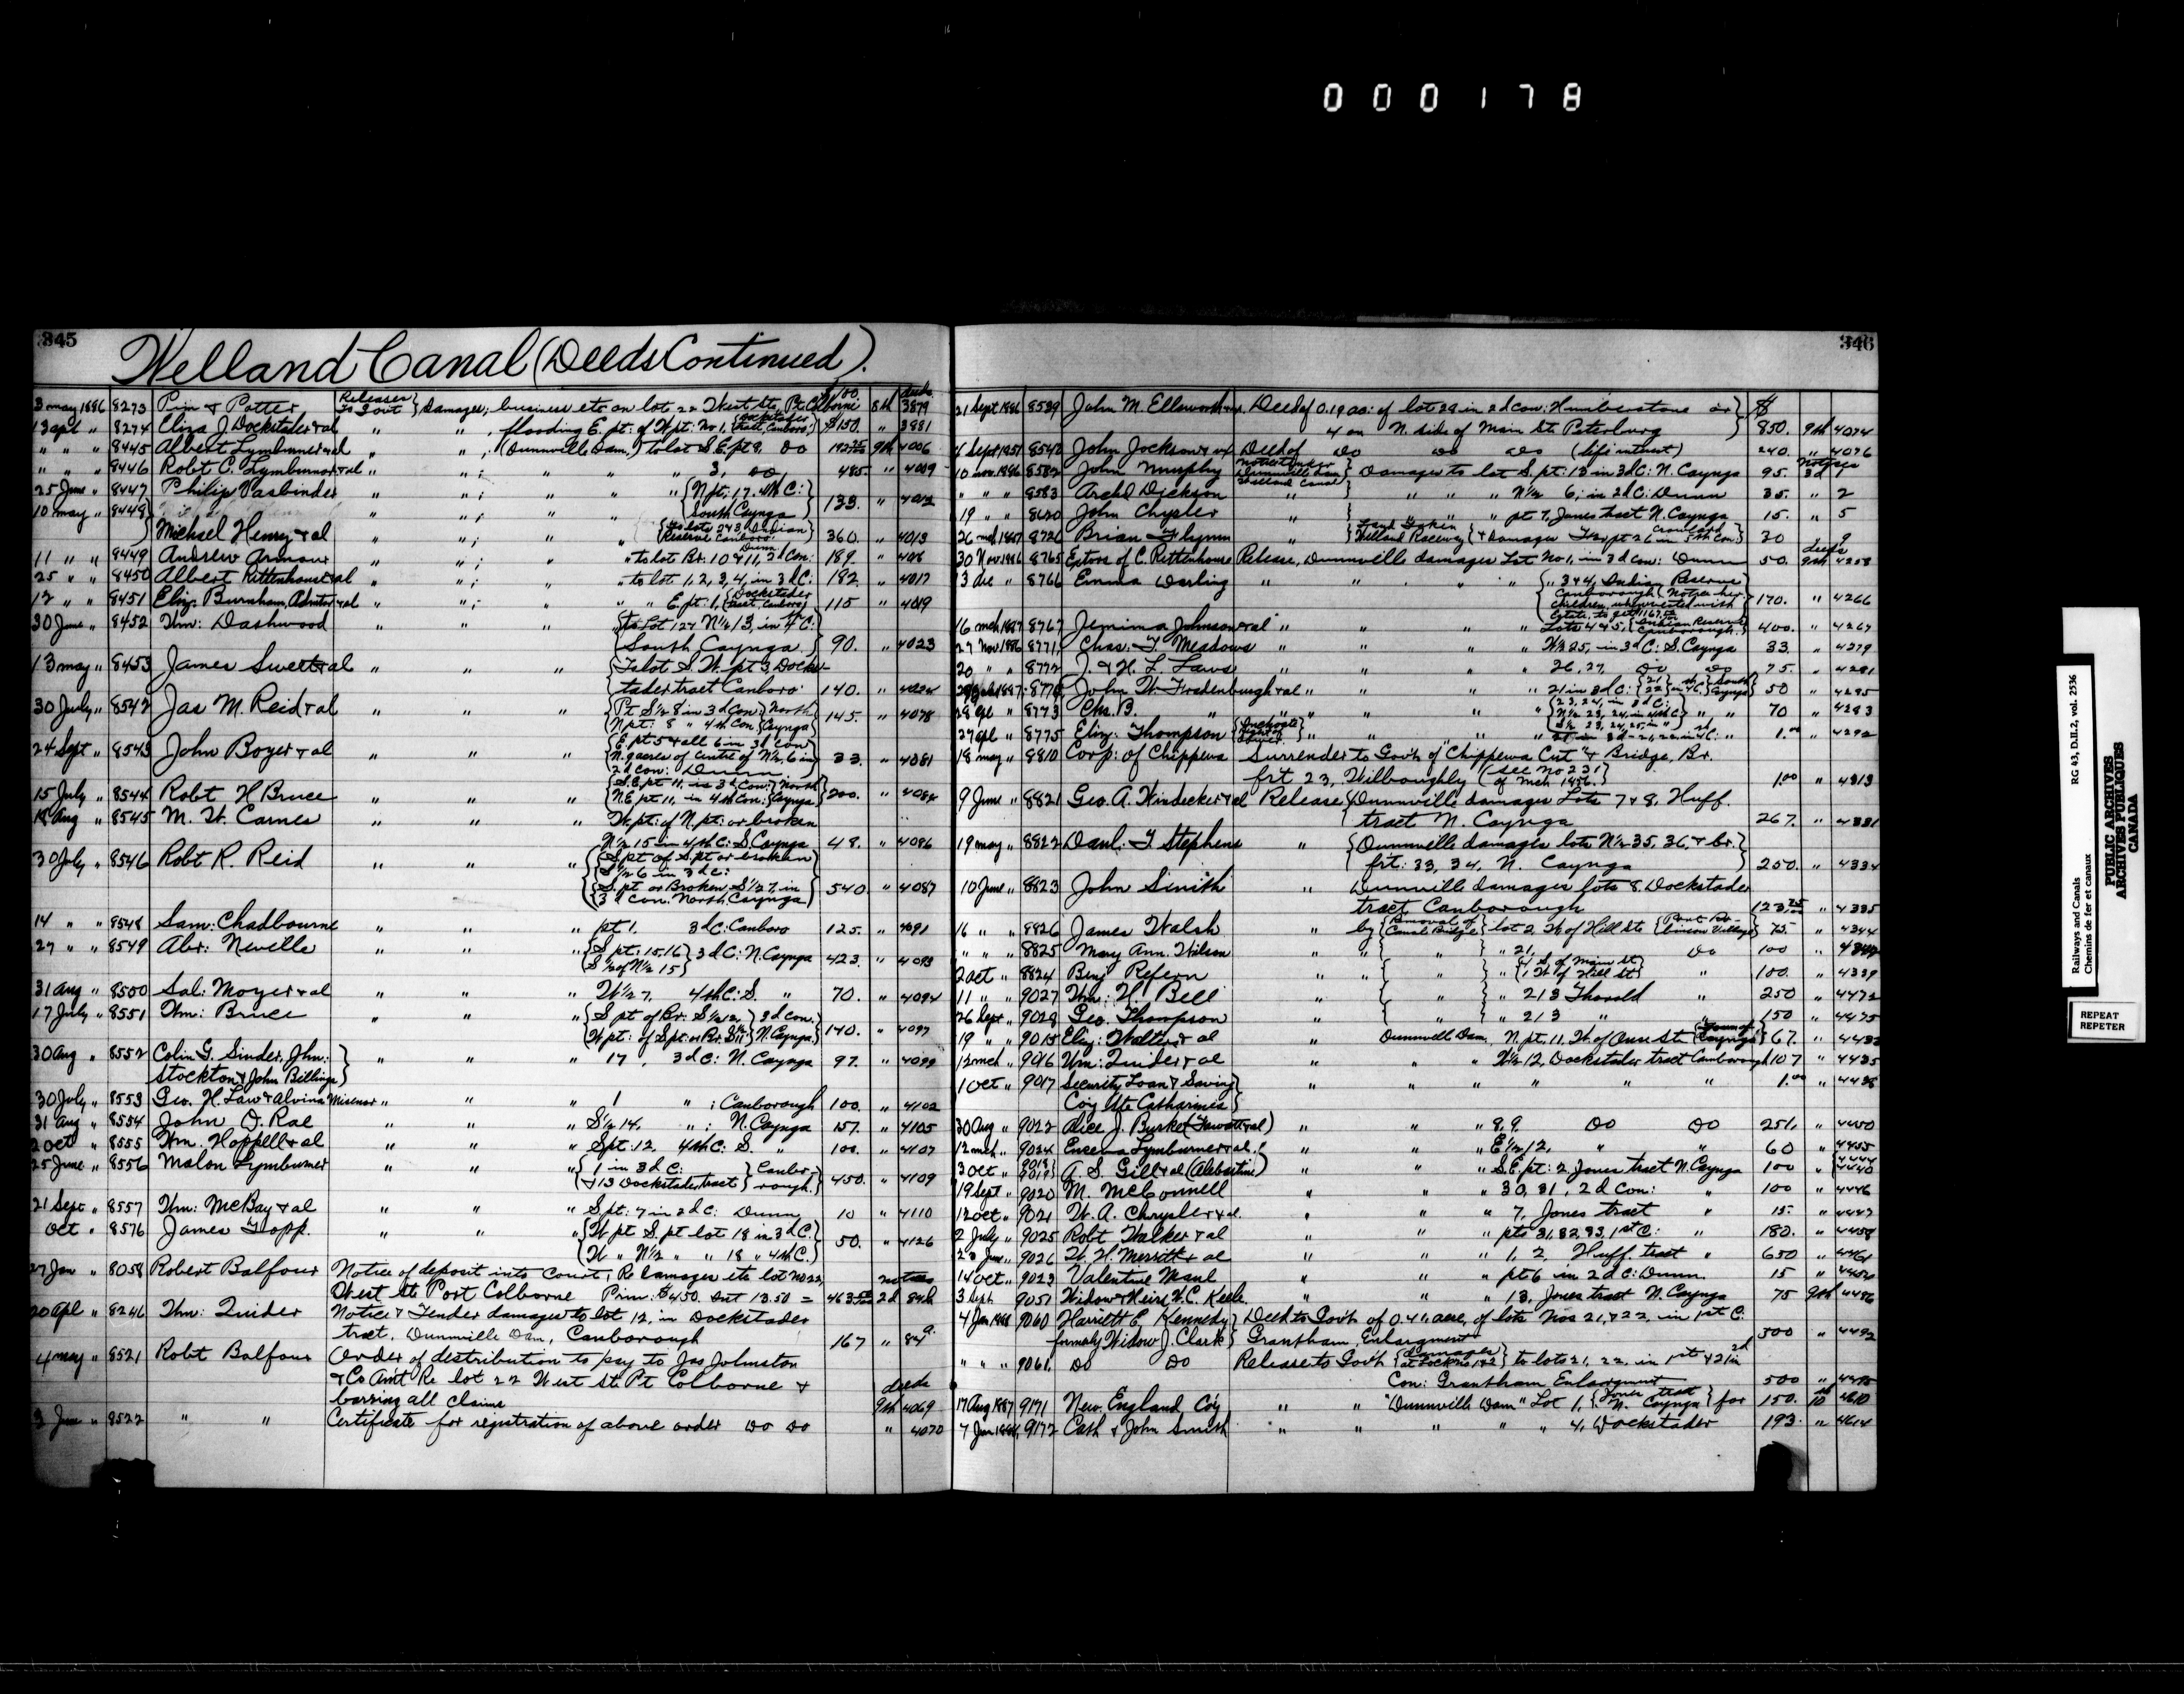 000178
345
Welland Canal (Deeds Continued).
3 may 1886 8273 Pim & Potter Releases to Govt } Damages; business etc on lot 22 West St. Pt. Colborne $100. 8th deeds 3879
13 apl " 8274 Eliza J Dockstader & al " " , flooding E. pt: of W. pt: No 1, { Dockstader tract, Canboro' } $150. " 3881
" " " 8445 Albert Lymburner & al " " , (Dunnville Dam,) to lot S.E. pt 9, Do 9th 4006
" " " 8446 Robt C. Lymburner & al " " ; " " " 3, Do, 485. " 4009
25 June " 8447 Philip Vasbinder " " ; " " { N pt: 17. 4th C: South Cayuga } 133. " 4012
10 may " 8448
Michael Henry & al " " ; " " { to lots 2 & 3, Indian Reserve Canboro' } 360. " 4013
11 " " 8449 Andrew Armour " " ; " " to lot Br. 10 & 11, 3d Con: Dunn 189. "
25 " " 8450 Albert Rittenhouse & al " " ; " " to lot 1, 2, 3, 4, in 3d C: 192. " 4017
12 " " 8451 Eliz. Burnham, Admtor & al " " ; " " " E. pt: 1, { Dockstader tract, Canboro } 115 " 4019
30 June " 8452 Wm: Dashwood " " " { to Lot 12 & N½ 13, in 4th C:
South Cayuga } 90. " 4023
13 may " 8453 James Swert & al " " " { To lot S. W. pt 3, Docks-
tader tract Canboro' 140. " 4024
30 July " 8542 Jas M. Reid & al " " " { Pt S½ 8 in 3d Con: } North
N pt: 8 " 4th Con { Cayuga } 145. " 4078
24 Sept " 8543 John Boyer & al " " { E pt 5 & all 6 in 3d Con
N. 9 acres of centre of N½, 6 in
2d Con: Dunn } 33. " 4081
15 July " 8544 Robt H Bruce " " " { S.E. pt 11, in 3d Con: } North
N.E pt 11, in 4th Con: { Cayuga } 200. " 4084
14 Aug " 8545 M. W. Carnes " " " W. pt: of N. pt: or broken
N½ 15 in 4th C: S Cayuga 48. " 4086
30 July " 8546 Robt R. Reid " " " { S pt of S. pt or broken
S½ 6 in 3d C:
S. pt or Broken S½ 7, in
3d Con. North Cayuga } 540. " 4087
14 " " 8548 Sam: Chadbourne " " " pt 1. 3d C: Canboro 125. " 4091
27 " " 8549 Abr: Neville " " " { S pt: 15, 16 } 3d C: N. Cayuga
S½ of N½ 15 } 423. " 4093
31 Aug " 8500 Sal: Moyer & al " " " W½ 7, 4th C: S. " 70. " 4094
17 July " 8551 Wm: Bruce " " " { S pt of Br. S½ 12, } 3d Con.
W pt: of S pt or Br. S½ 11 } N. Cayuga } 140. " 4097
30 Aug " 8552 Colin G. Sinder, Jhn: } " " " 17, 3d C: N. Cayuga 97. " 4099
Stockton & John Billings }
30 July " 8553 Geo. H. Law & Alvina Misener " " " 1 " ; Canborough 100. " 4102
31 Aug " 8554 John D. Rae " " " S½ 14, " ; N. Cayuga 157. " 4105
2 oct " 8555 Wm. Hoppell & al " " " S pt: 12, 4th C: S. " 100. " 4107
25 June " 8556 Malon Lymburner " " " { 1 in 3d C:
& 13 Dockstader tract } Canbor-
ough. } 450. " 4109
21 Sept " 8557 Wm: McBay & al " " " S pt: 7 in 2d C: Dunn 10 " 4110
Oct " 8576 James Topp. " " " { W pt S. pt lot 18 in 3d C:
W " N½ " " 18 " 4th C. } 50. " 4126
27 Jan " 8058 Robert Balfour Notice of deposit into Court, Re Damages etc lot No 22, notices
West St. Port Colborne Prin: $450. Int 13.50 = 463.50 2d 848
20 apl " 8246 Wm: Quider Notice & Tender damages to lot 12, in Dockstader
tract, Dunnville Dam, Canborough 167 "
4 may " 8521 Robt Balfour Order of distribution to pay to Jas Johnston
& Co Am't Re lot 22 West St. Pt Colborne & deeds
barring all claims 9th 4069
3 June " 8522 " " Certificate for registration of above order Do Do " 4070
346
21 Sept 1886 8539 John M. Ellsworth & ux. Deed of 0.19 ac: of lot 29 in 2d Con: Humberstone or } $
4 on N. side of Main St. Petersburg } 850. 9th 4074
4 Sept 1857 8540 John Jackson & wf Deed of Do Do Do (life interest) 240. " 4076
10 nov. 1886 8582 John Murphy Notice tender Dunnville Dam Welland Canal } Damages to lot S. pt: 13 in 3d C: N. Cayuga 95. Notices 3d 1
" " " 8583 Archd Dickson " " " " N½ 6, in 2d C: Dunn 35. " 2
19 " " 8620 John Chrysler " { " " " pt 7, Jones tract N. Cayuga 15. " 5
26 mch 1887 8726 Brian Flynn " { Land Taken Welland Raceway } & Damages pt 26 in 5th Con: Crowland 30 9
30 Nov 1886 8765 Extors of C. Rittenhouse Release, Dunnville damages Lot No 1, in 3d Con: Dunn 50. deeds 9th 4258
13 Dec " 8766 Emma Darling " " " " { " 3 & 4, Indian Reserve
Canborough {
children, when vested with
Estate, to get 1167.50 } 170. " 4266
16 mch 1887 8767 Jemima Johnson & al " " " " Lots 4 & 5, { Indian Reserve Canborough. } 400. " 4267
27 Nov 1886 8771 Chas. F. Meadows " " " " W½ 25, in 3d C: S. Cayuga 33. " 4279
20 " " 8772 J. & H. L. Laws " " " " 26, 27, Do Do 75. " 4281
John W. Fradenburgh & al " " " " 21 in 3d C: South Cayuga 50 " 4295
28 apl " 8773 Chs. B. " " " " { 23, 24, in 3d C:
N½ 23, 24, in 4th C } " " 70 " 4283
27 apl " 8775 Eliz: Thompson { Inchoate Right of Dower } " " " " 1.00 " 4292
18 may " 8810 Corp: of Chippewa Surrender to Gov't of "Chippewa Cut" & Bridge, Br.
frt 23, Willoughby (see No 231 of mch 1856.) 1.00 " 4313
9 June " 8821 Geo. A. Windecker & al Release { Dunnville damages Lots 7 & 8, Huff.
tract N. Cayuga 267. " 4331
19 may " 8822 Danl. T. Stephens " { Dunnville damages lots N½ 35, 36, & br. }
frt: 33, 34, N. Cayuga } 250. " 4334
10 June " 8823 John Smith " Dunnville damages lots 8, Dockstader
tract Canborough 123.75 " 4335
16 " " 8826 James Walsh " by { Removal of Canal Bridge } lot 2, W. of Hill St. { Port Ro- binson Village } 75. " 4344
" " " 8825 Mary Ann. Wilson " " { " } " 21, Do 100 "
2 oct " 8824 Benj Refern " " { " } " { 4 S. of Main St 1 W. of Hill St } " 100. " 4339
11 " " 9027 Wm: H. Bell " { " } " 213 Thorold " 250 " 4472
26 Sept " 9028 Geo. Thompson " { " } " 213 " " 150 " 4475
19 " " 9015 Eliz: Walter & al " Dunnville Dam, N. pt. 11, W. of Ouse St. { Town of Cayuga } 67. " 4433
12 mch " 9016 Wm: Quider & al " " " W½ 12, Dockstader tract Canborough 107 " 4435
1 oct " 9017 Security Loan & Saving } " " " " " 1.00 " 4438
Co'y St. Catharines }
30 Aug " 9022 Alice J. Burke (Fawcett & al) " " " 8, 9. Do Do 251. " 4450
12 mch " 9024 Lymburner & al. " " " E½ 12, " " 60 " 4455
3 oct " 9018 9019 } A. S. Gill & al (Alabastine) " " " S. E. pt: 2, Jones tract N. Cayuga 100 " 4444 4440
19 Sept " 9020 M. McConnell " " " 30, 31, 2d Con: " 100 " 4446
12 oct " 9021 W. A. Chrysler & al. " " " 7, Jones tract " 15. " 4447
2 July " 9025 Robt Walker & al " " " pts 31, 32, 33, 1st C: " 180. " 4458
June " 9026 W. H. Merritt & al " " " 1, 2, Huff. tract " 650 " 4461
14 oct " 9023 Valentine Maul " " " pt 6 in 2d C: Dunn. 15 "
3 Sept. 9051 Widow & Heirs W. C. Keele " " " 13, Jones tract N. Cayuga 75 9th 4486
4 Jan 1888 9060 Harriett E. Kennedy } Deed to Gov't of 0.4 acre, of lots Nos 21, & 22, in 1st C.
formerly Widow J. Clark } Grantham, Enlargement 300 " 4492
" " " 9061. Do Do Release to Gov't { damages at Lock No 1 & 2 } to lots 21, 22, in 1st & 21 in 2d
Con: Grantham Enlargment 500 " 4495
17 Aug 1887 9171 New England Co'y " " "Dunnville Dam" Lot 1, { Jones tract N. Cayuga } for 150. 10th 4610
7 Jan 1888 9172 Cath & John Smith " " " " " 4, Dockstader 193. " 4614
Railways and Canals
Chemins de fer et canaux
RG 43, D.II.2, vol. 2536
PUBLIC ARCHIVES
ARCHIVES PUBLIQUES
CANADA
REPEAT
REPETER